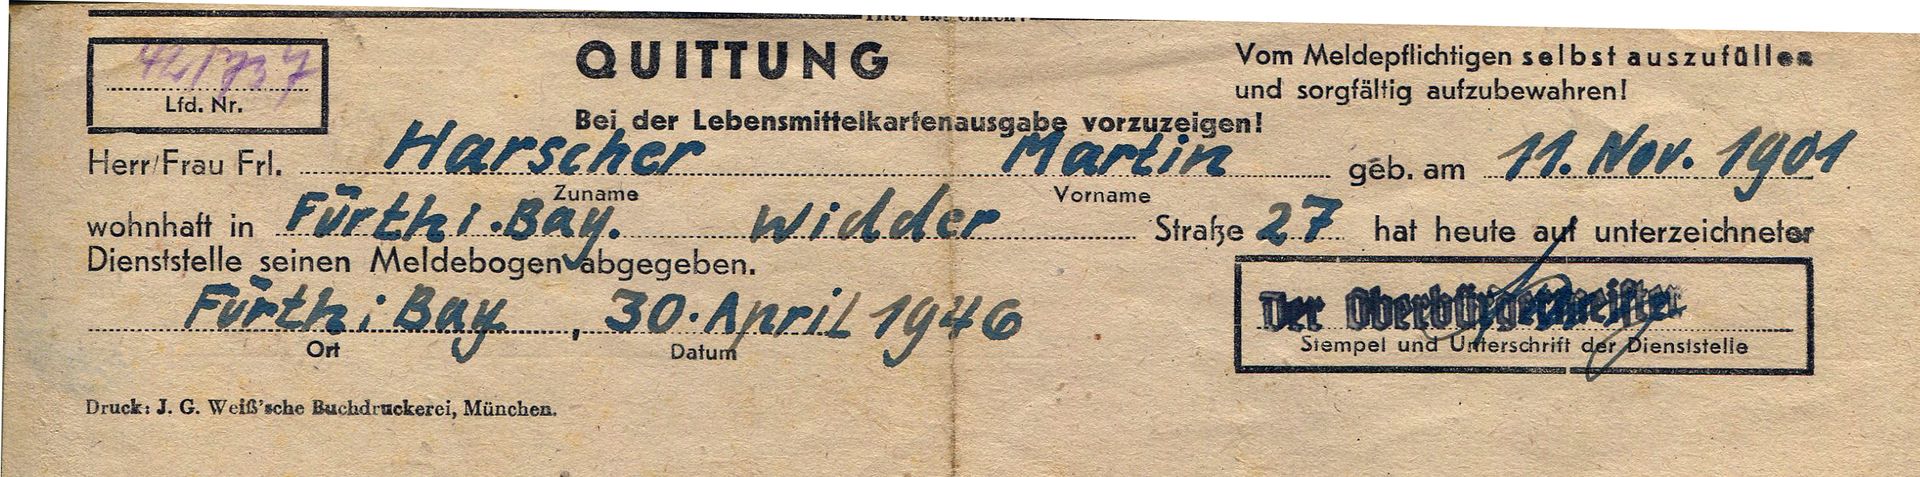 Hier abtrennen!
42/737
Lfd. Nr.
QUITTUNG
Vom Meldepflichtigen selbst auszufüllen
und sorgfältig aufzubewahren!
Bei der Lebensmittelkartenausgabe vorzuzeigen!
Herr/Frau Frl. Harscher Martin geb. am 11. Nov. 1901
Zuname Vorname
wohnhaft in Fürth i. Bay. Widder Straße 27 hat heute auf unterzeichneter
Dienststelle seinen Meldebogen abgegeben.
Fürth i Bay, 30. April 1946
Ort Datum
Der Oberbürgermeister
Stempel und Unterschrift der Dienststelle
Druck: J. G. Weiß'sche Buchdruckerei, München.